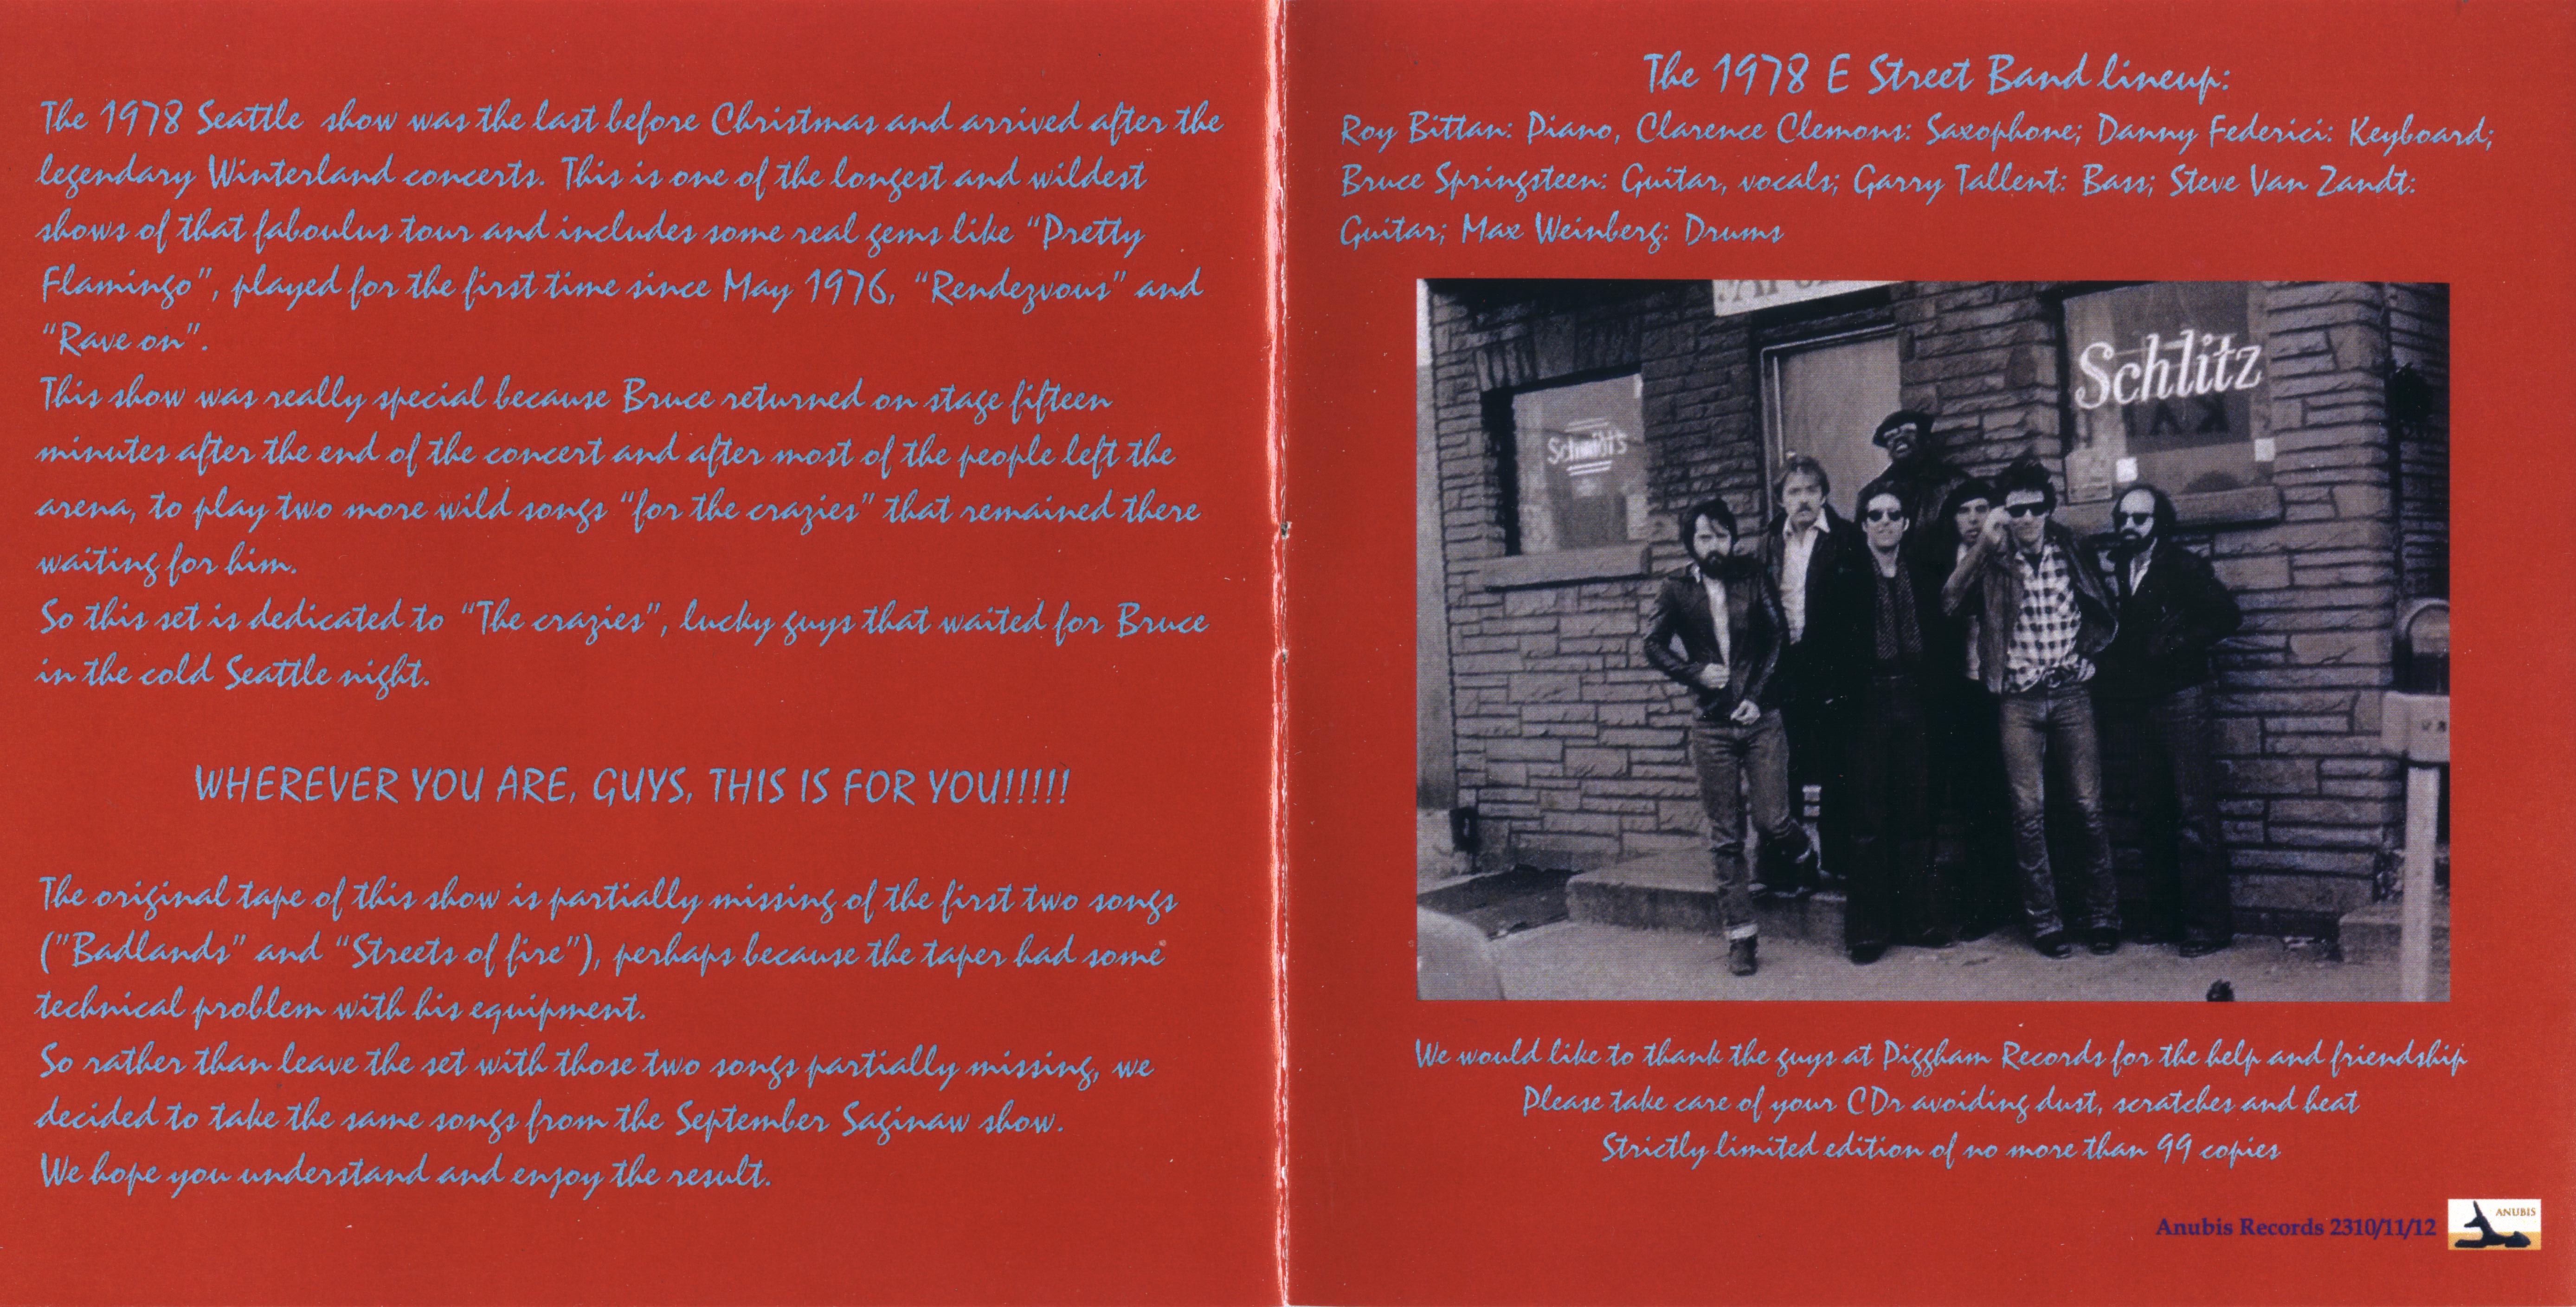 The 1978 Seattle show was the last before Christmas and arrived after the
legendary Winterland concerts. This is one of the longest and wildest
shows of that faboulus tour and includes some real gems like "Pretty
Flamingo", played for the first time since May 1976, "Rendezvous" and
"Rave on".
This show was really special because Bruce returned on stage fifteen
minutes after the end of the concert and after most of the people left the
arena, to play two more wild songs "for the crazies" that remained there
waiting for him.
So this set is dedicated to "The crazies", lucky guys that waited for Bruce
in the cold Seattle night.
WHEREVER YOU ARE, GUYS, THIS IS FOR YOU!!!!!
The original tape of this show is partially missing of the first two songs
("Badlands" and "Streets of fire"), perhaps because the taper had some
technical problem with his equipment.
So rather than leave the set with those two songs partially missing, we
decided to take the same songs from the September Saginaw show.
We hope you understand and enjoy the result.
The 1978 E Street Band lineup:
Roy Bittan: Piano, Clarence Clemons: Saxophone; Danny Federici: Keyboard;
Bruce Springsteen: Guitar, vocals; Garry Tallent: Bass; Steve Van Zandt:
Guitar; Max Weinberg: Drums
Schlitz
Schmidt's
We would like to thank the guys at Piggham Records for the help and friendship
Please take care of your CDr avoiding dust, scratches and heat
Strictly limited edition of no more than 99 copies
Anubis Records 2310/11/12
ANUBIS